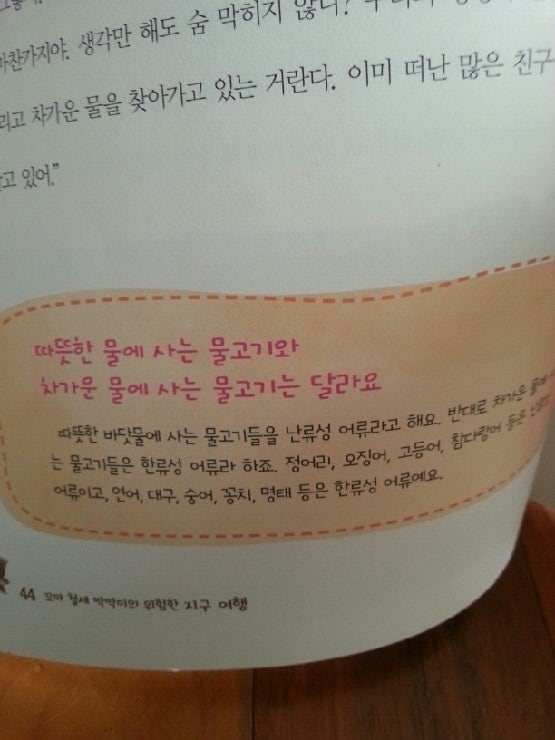 마찬가지야. 생각만 해도 숨 막히지 않니?
리고 차가운 물을 찾아가고 있는 거란다. 이미 떠난 많은 친구
고 있어."
따뜻한 물에 사는 물고기와
차가운 물에 사는 물고기는 달라요
따뜻한 바닷물에 사는 물고기들을 난류성 어류라고 해요. 반대로 차가운 물에 사
는 물고기들은 한류성 어류라 하죠. 정어리, 오징어, 고등어, 참다랑어 등은 난류성
어류이고, 연어, 대구, 숭어, 꽁치, 명태 등은 한류성 어류예요.
44 꼬마 철새 딱딱이의 위험한 지구 여행